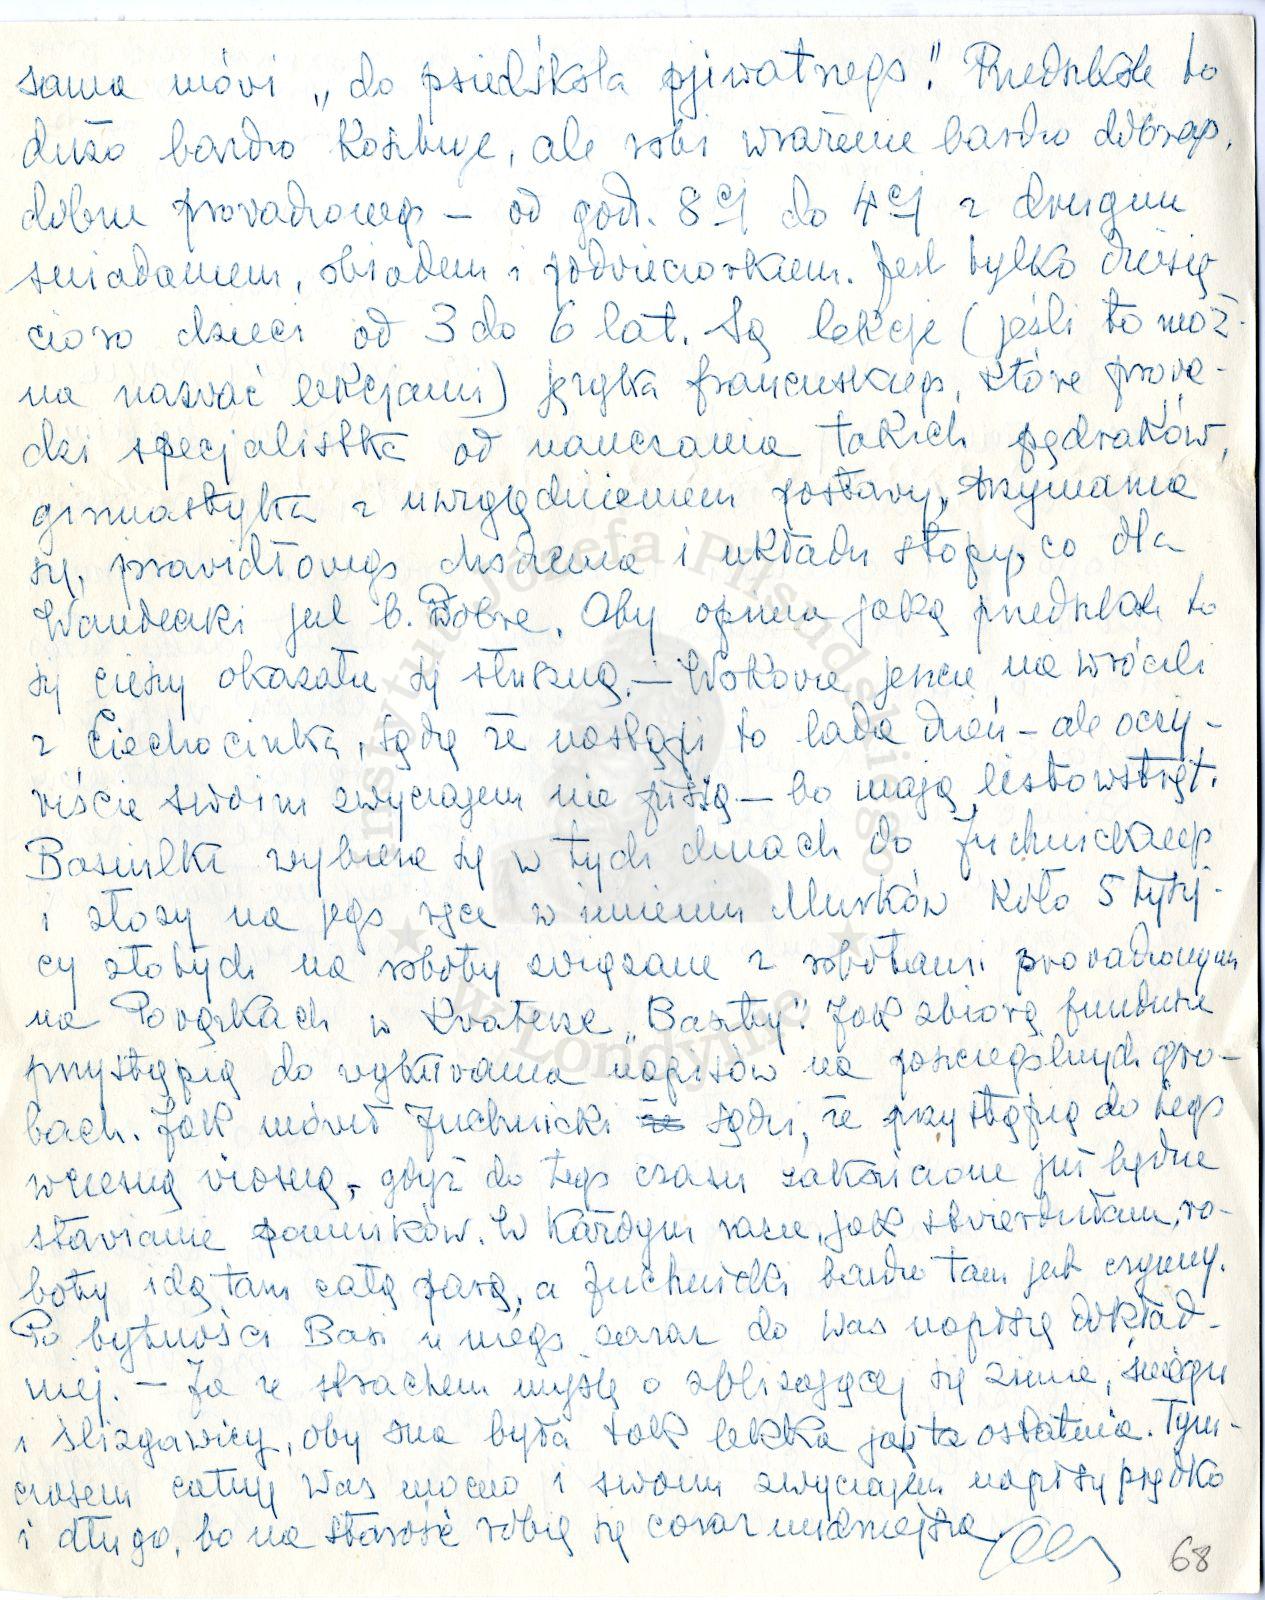 sama mówi „do psiedśkola pjiwatnego." Przedszkole to
dużo bardzo kosztuje, ale robi wrażenie bardzo dobrego,
dobrze prowadzonego – od godz. 8ej do 4ej z drugim
śniadaniem, obiadem i podwieczorkiem. Jest tylko dziesię
cioro dzieci od 3 do 6 lat. Są lekcje (jeśli to moż-
na nazwać lekcjami) języka francuskiego, które prowa-
dzi specjalistka od nauczania takich pędraków,
gimnastyka z uwzględnieniem postawy, trzymania
się, prawidłowego chodzenia i układu stopy, co dla
Wandeczki jest b. dobre. Oby opinia jaką przedszkole to
się cieszy okazała się słuszną. – Wokowie jeszcze nie wrócili
z Ciechocinka, sądzę że nastąpi to lada dzień – ale oczy-
wiście swoim zwyczajem nie piszą – bo mają listowstręt.
Basiulka wybiera się w tych dniach do Juchnickiego
i złoży na jego ręce w imieniu Murków koło 5 tysię-
cy złotych na roboty związane z robotami prowadzonymi
na Powązkach w kwaterze „Baszty". Jak zbiorą fundusze
przystąpią do wykuwania napisów na poszczególnych gro-
bach. Jak mówił Juchnicki że sądzi, że przystąpią do tego
wczesną wiosną, gdyż do tego czasu zakończone już będzie
stawianie pomników. W każdym razie, jak stwierdziłam, ro-
boty idą tam całą parą, a Juchnicki bardzo tam jest czynny.
Po bytności Basi u niego zaraz do Was napiszę dokład-
niej. – Ja ze strachem myślę o zbliżającej się zimie, śniegu
i ślizgawicy, oby ona była tak lekka jak ta ostatnia. Tym-
czasem całuję Was mocno i swoim zwyczajem napiszę prędko
i długo, bo na starość robię się coraz nudniejsza.
68
Instytut Józefa Piłsudskiego
w Londynie